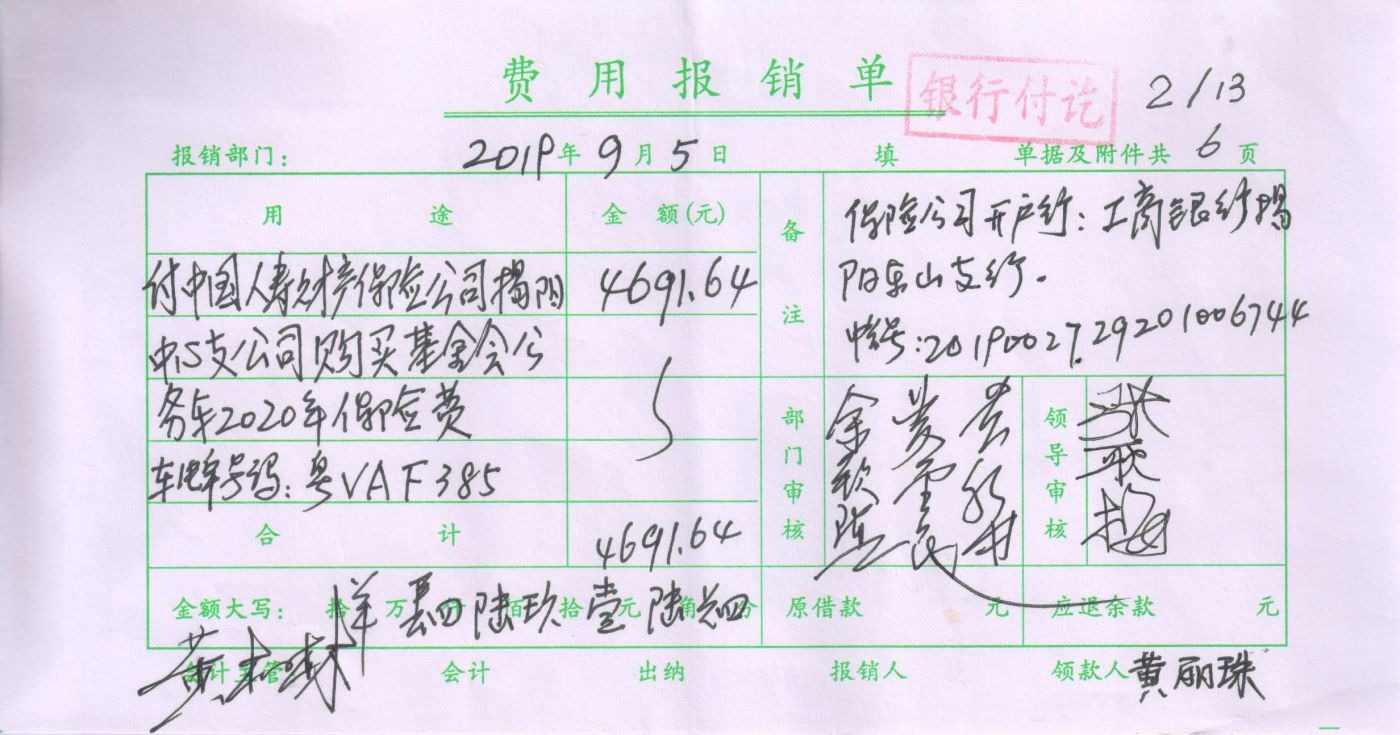 费用报销单
银行付讫
2/13
报销部门: 2019年9月5日 填 单据及附件共6页
用途 金额(元) 备注
保险公司开户行: 工商银行揭
阳东山支行.
帐号:2019002729201006744
付中国人寿财产保险公司揭阳 4691.64
中心支公司购买基金会公
务车2020年保险费
车牌号码: 粤VAF385
部门审核 领导审核
合计 4691.64
金额大写: 拾 万 仟 肆 佰 陆 拾 玖 元 壹 角 陆 分 肆 原借款 元 应退余款 元
会计主管 会计 出纳 报销人 领款人 黄丽珠